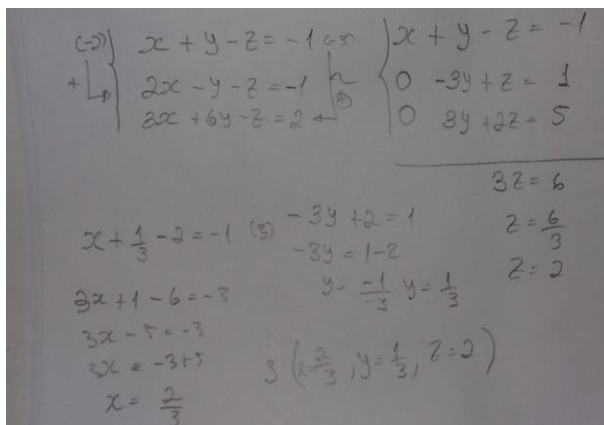 (-2) x + y - z = -1 (-3)
+ 2x - y - z = -1
3x + 6y - z = 2 (+)
x + y - z = -1
0 -3y + z = 1
0 3y + 2z = 5
3z = 6
z = 6/3
z = 2
-3y + 2 = 1
-3y = 1 - 2
y = -1/-3 y = 1/3
x + 1/3 - 2 = -1 (3)
3x + 1 - 6 = -3
3x - 5 = -3
3x = -3 + 5
x = 2/3
S (x = 2/3, y = 1/3, z = 2)